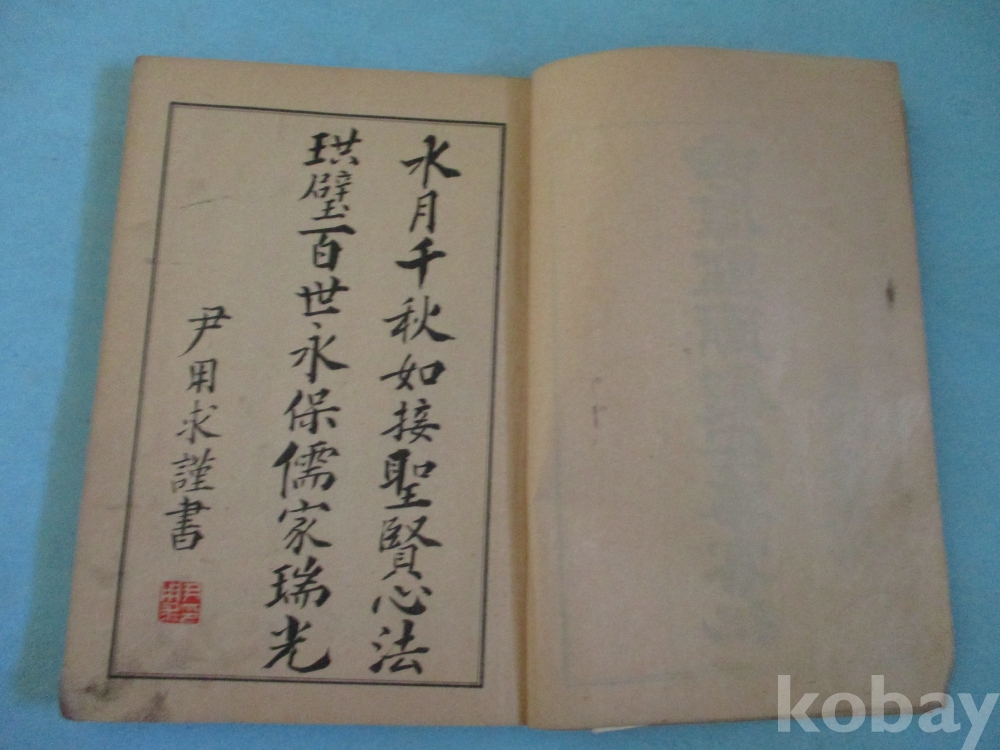 水月千秋如接聖賢心法
珙璧百世永保儒家瑞光
尹用求謹書
kobay